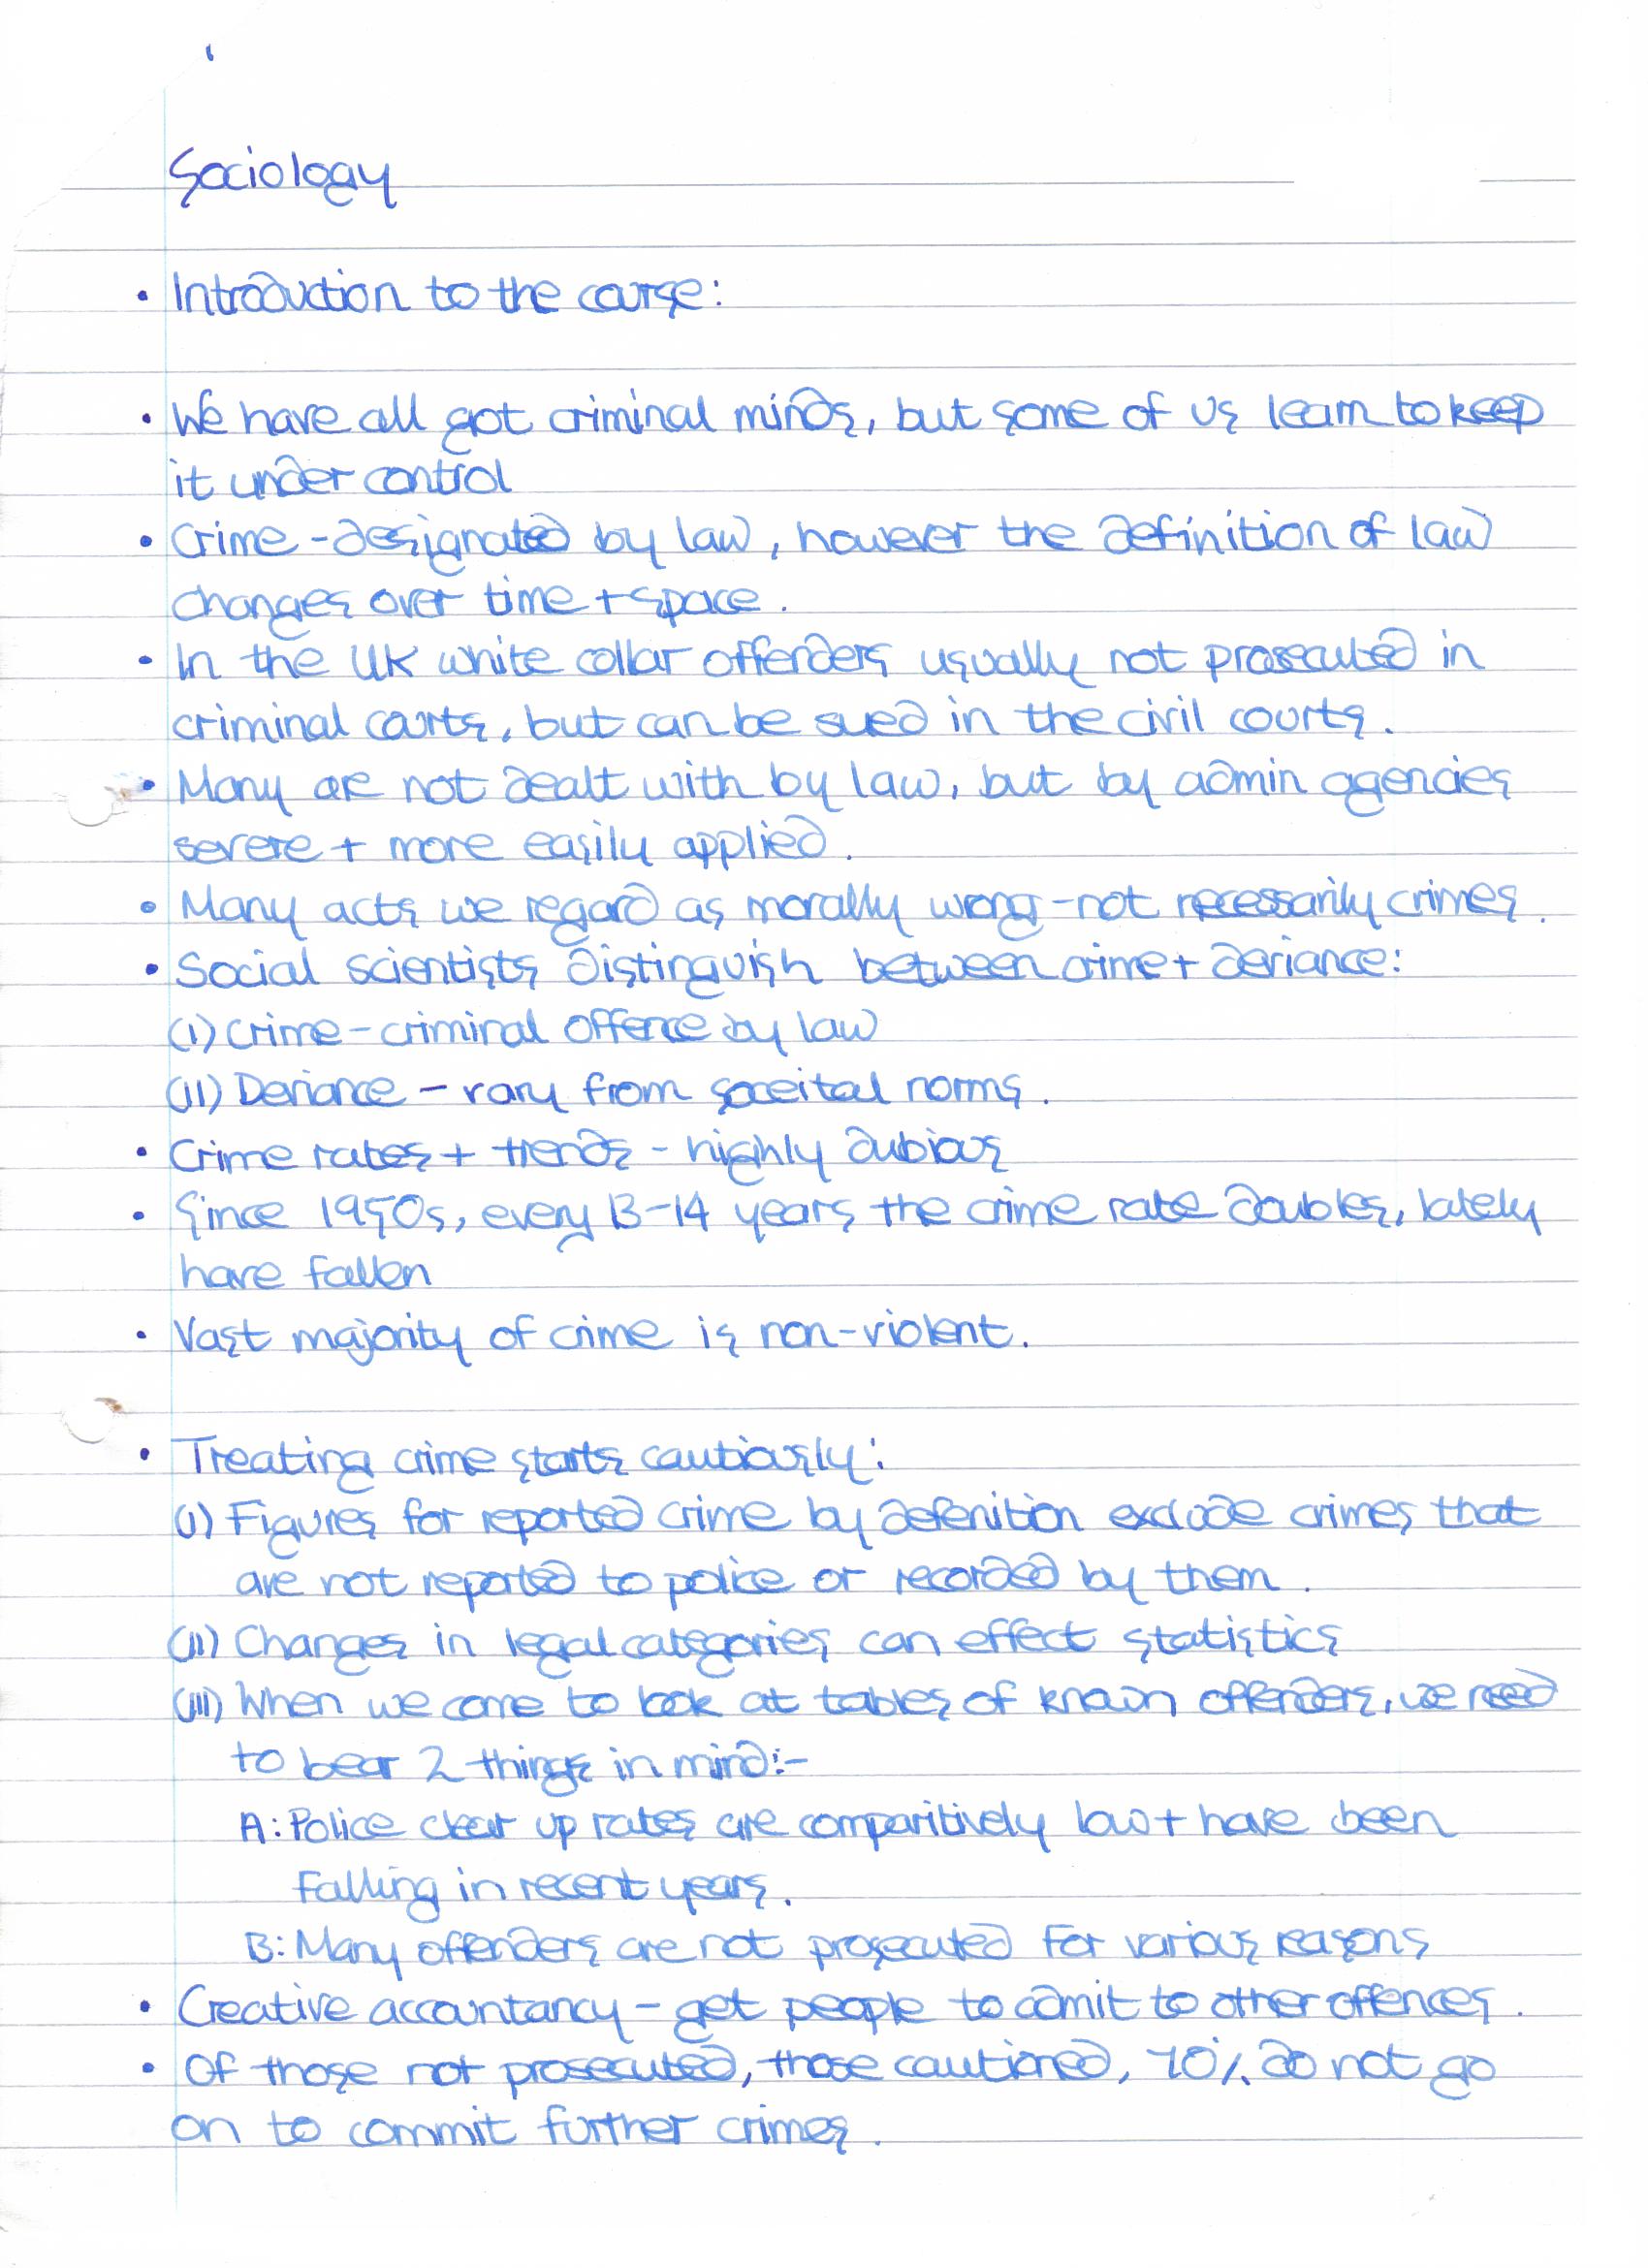 Sociology
• Introduction to the course:
• We have all got criminal minds, but some of us learn to keep
it under control
• Crime - designated by law, however the definition of law
changes over time + space.
• In the UK white collar offenders usually not prosecuted in
criminal courts, but can be sued in the civil courts.
• Many are not dealt with by law, but by admin agencies
severe + more easily applied.
• Many acts we regard as morally wrong - not necessarily crimes.
• Social scientists distinguish between crime + deviance:
(i) Crime - criminal offence by law
(ii) Deviance - vary from soceital norms.
• Crime rates + trends - highly dubious
• Since 1950s, every 13-14 years the crime rate doubles, lately
have fallen
• Vast majority of crime is non-violent.
• Treating crime starts cautiously:
(i) Figures for reported crime by defenition exclude crimes that
are not reported to police or recorded by them.
(ii) Changes in legal categories can effect statistics
(iii) When we come to look at tables of known offenders, we need
to bear 2 things in mind:-
A: Police clear up rates are comparitively low + have been
falling in recent years.
B: Many offenders are not prosecuted for various reasons
• Creative accountancy - get people to admit to other offences.
• Of those not prosecuted, those cautioned, 70% do not go
on to commit further crimes.